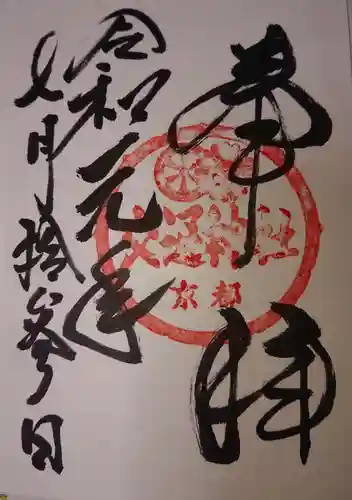 奉拝
令和元年
七月拾参日
神社
京都